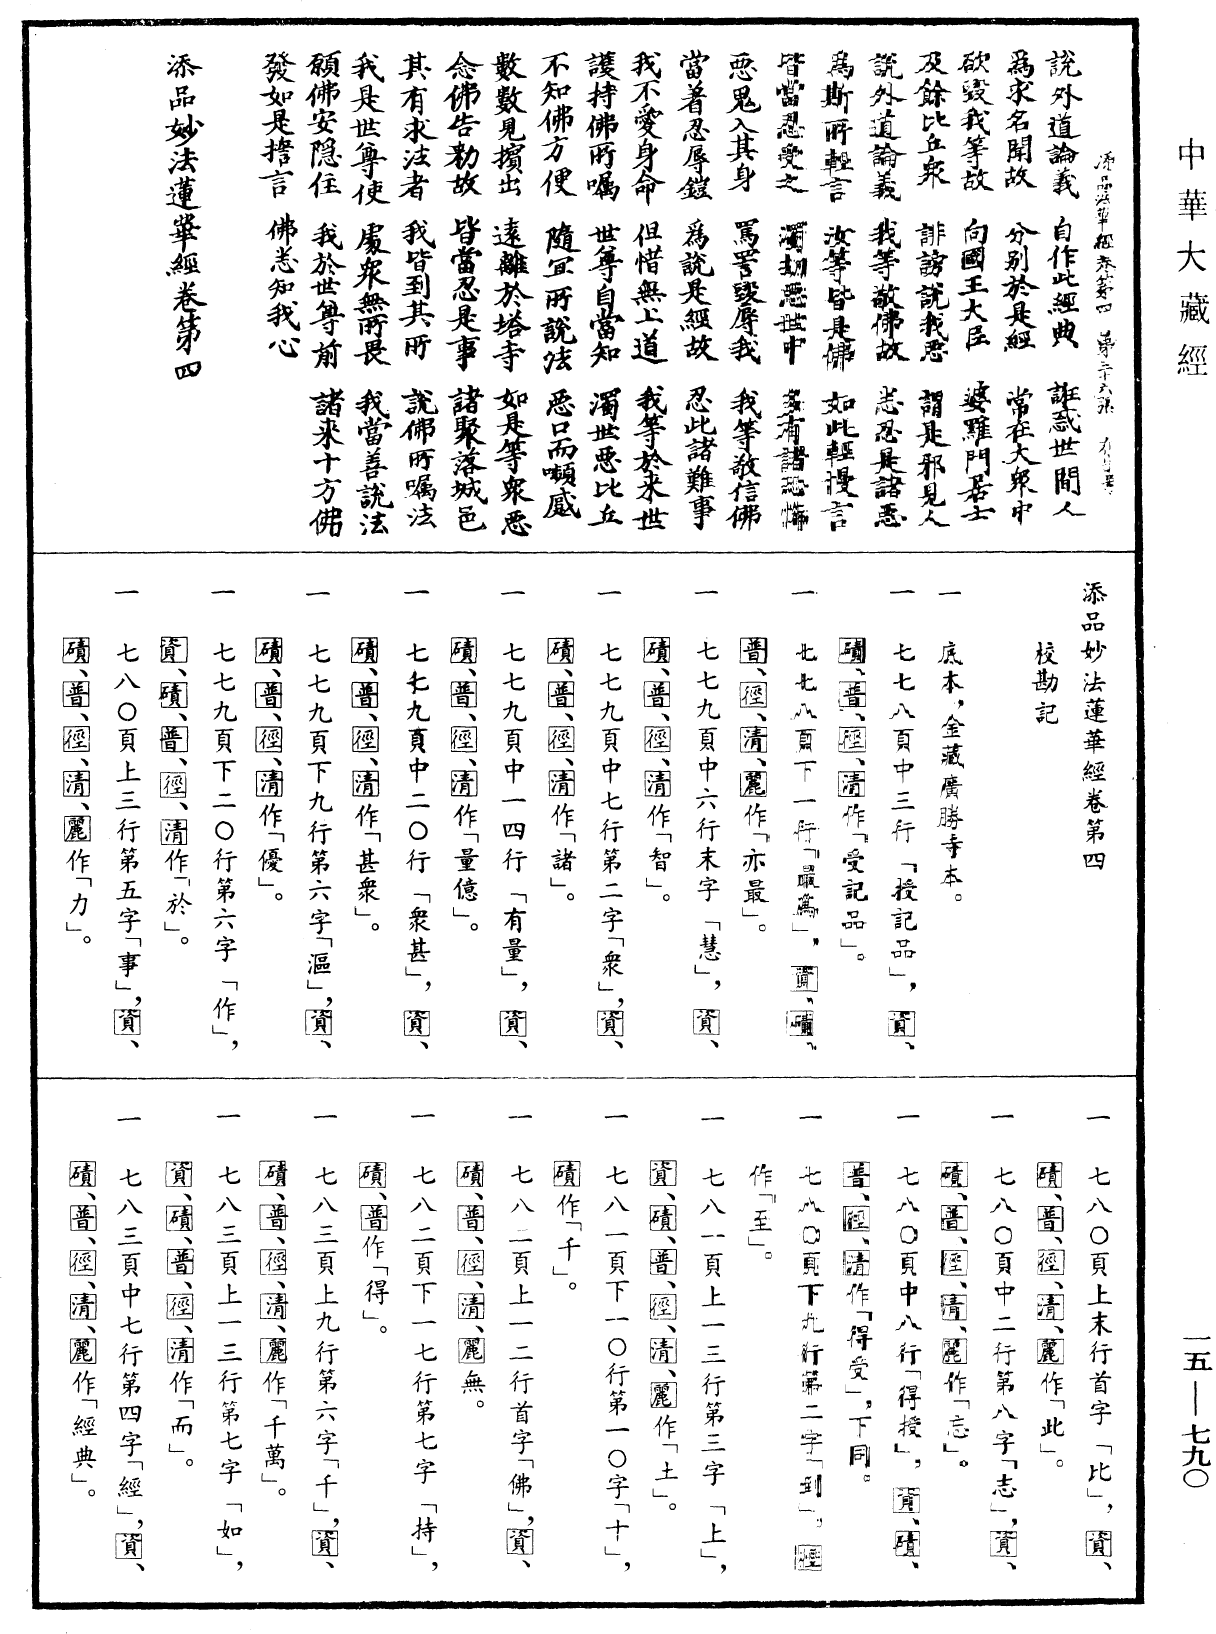 中華大藏經
添品法華經卷第四　第二十六張
說外道論義　自作此經典　誑惑世間人
爲求名聞故　分別於是經　常在大衆中
欲毀我等故　向國王大臣　婆羅門居士
及餘比丘衆　誹謗說我惡　謂是邪見人
說外道論義　我等敬佛故　悉忍是諸惡
爲斯所輕言　汝等皆是佛　如此輕慢言
皆當忍受之　濁劫惡世中　多有諸恐怖
惡鬼入其身　罵詈毀辱我　我等敬信佛
當著忍辱鎧　爲說是經故　忍此諸難事
我不愛身命　但惜無上道　我等於來世
護持佛所囑　世尊自當知　濁世惡比丘
不知佛方便　隨宜所說法　惡口而嚬蹙
數數見擯出　遠離於塔寺　如是等衆惡
念佛告勅故　皆當忍是事　諸聚落城邑
其有求法者　我皆到其所　說佛所囑法
我是世尊使　處衆無所畏　我當善說法
願佛安隱住　我於世尊前　諸來十方佛
發如是誓言　佛悉知我心
添品妙法蓮華經卷第四
添品妙法蓮華經卷第四
校勘記
一　底本，金藏廣勝寺本。
一　七七八頁中三行「授記品」，資、
磧、普、徑、清作「受記品」。
一　七七八頁下一行「最爲」，資、磧、
普、徑、清、麗作「亦最」。
一　七七九頁中六行末字「慧」，資、
磧、普、徑、清作「智」。
一　七七九頁中七行第二字「衆」，資、
磧、普、徑、清作「諸」。
一　七七九頁中一四行「有量」，資、
磧、普、徑、清作「量億」。
一　七七九頁中二〇行「衆甚」，資、
磧、普、徑、清作「甚衆」。
一　七七九頁下九行第六字「漚」，資、
磧、普、徑、清作「優」。
一　七七九頁下二〇行第六字「作」，
資、磧、普、徑、清作「於」。
一　七八〇頁上三行第五字「事」，資、
磧、普、徑、清、麗作「力」。
一　七八〇頁上末行首字「比」，資、
磧、普、徑、清、麗作「此」。
一　七八〇頁中二行第八字「志」，資、
磧、普、徑、清、麗作「忘」。
一　七八〇頁中八行「得授」，資、磧、
普、徑、清作「得受」，下同。
一　七八〇頁下九行第二字「到」，徑
作「至」。
一　七八一頁上一三行第三字「上」，
資、磧、普、徑、清、麗作「土」。
一　七八一頁下一〇行第一〇字「十」，
磧作「千」。
一　七八二頁上一二行首字「佛」，資、
磧、普、徑、清、麗無。
一　七八二頁下一七行第七字「持」，
磧、普作「得」。
一　七八三頁上九行第六字「千」，資、
磧、普、徑、清、麗作「千萬」。
一　七八三頁上一三行第七字「如」，
資、磧、普、徑、清作「而」。
一　七八三頁中七行第四字「經」，資、
磧、普、徑、清、麗作「經典」。
一五—七九〇